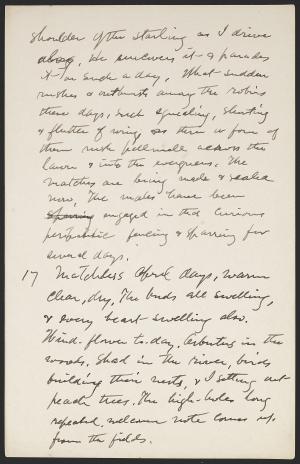 shoulder of the starling as I drive
along, he renewers it & parades
it on such a day. What sudden
rushes & outbursts among the robins
these days, such squealing, shouting
& flutter of wing, as three or four of
them rush pellmell across the
lawn & into the evergreens. The
matches are being made & sealed
now. The males have been
sparring engaged in that curious
peripatetic fencing & sparring for
several days.
17 Matchless April days, warm
clear, dry. The buds all swelling,
& every heart swelling also.
Wind-flower to-day. Arbutus in the
woods. Shad in the river, birds
building their nests, & I setting out
peach trees. The high-holes long
repeated, welcome note comes up
from the fields.